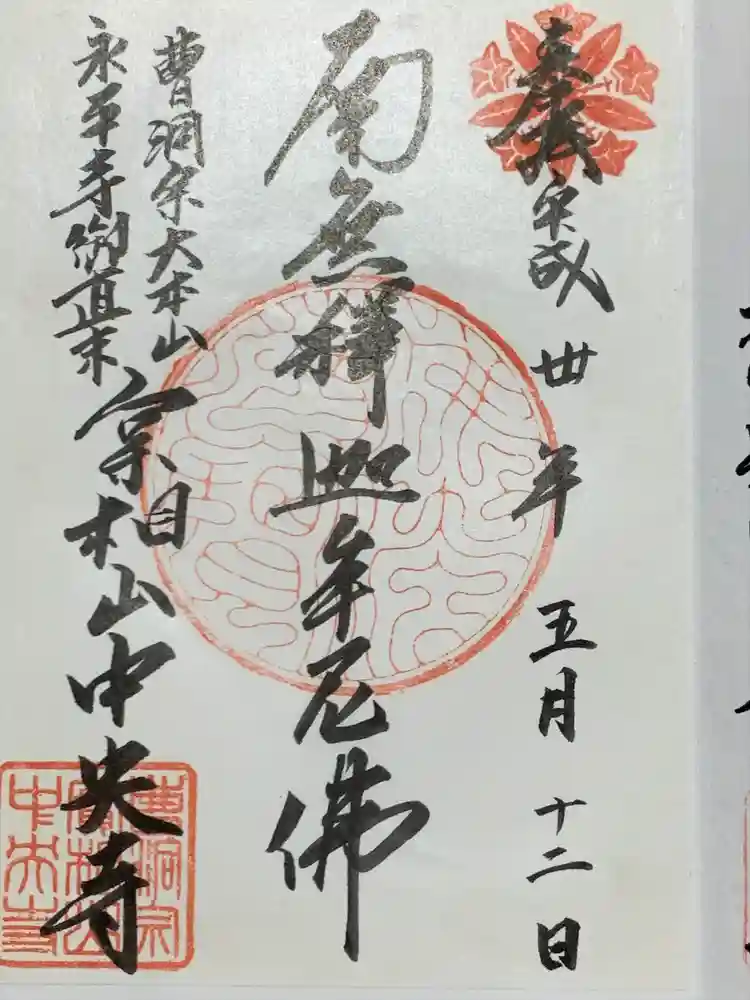 奉拝
平成丗年 五月 十二日
南無釋迦牟尼佛
曹洞宗大本山
永平寺御直末
相山中央寺
曹洞宗
相山
中央寺